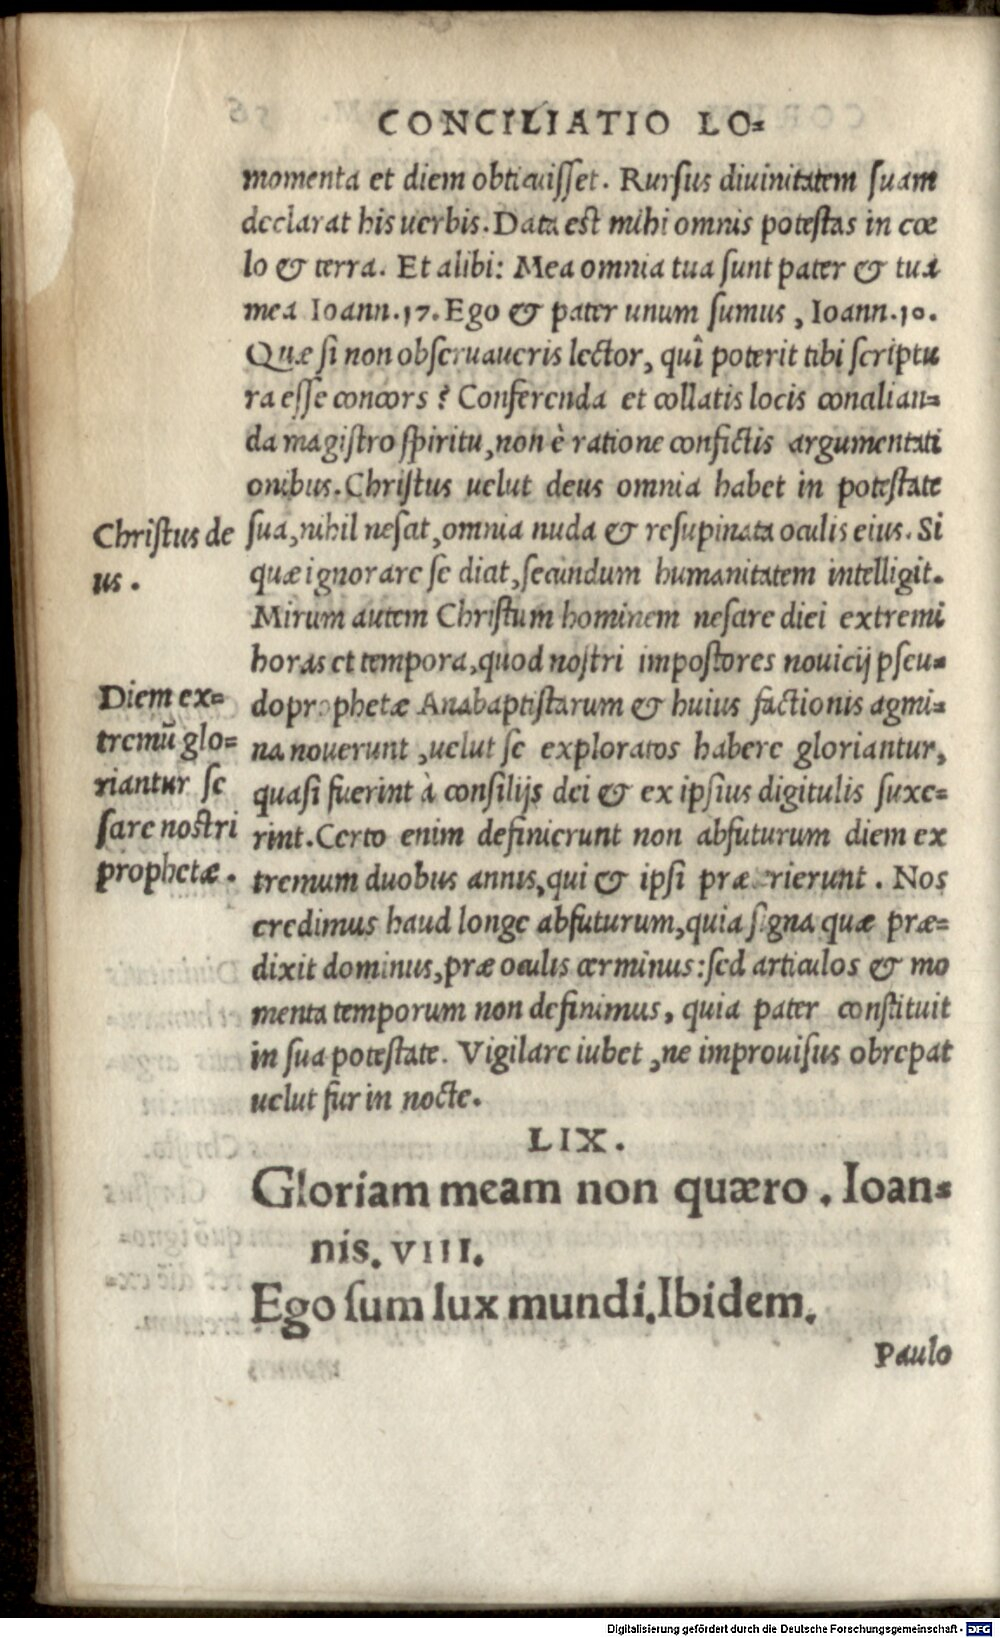 CONCILIATIO LO-
momenta et diem obticuisset. Rursus diuinitatem suam
declarat his uerbis. Data est mihi omnis potestas in cœ
lo & terra. Et alibi: Mea omnia tua sunt pater & tua
mea Ioann.17. Ego & pater unum sumus, Ioann.10.
Quæ si non obseruaueris lector, quî poterit tibi scriptu
ra esse concors? Conferenda et collatis locis concilian-
da magistro spiritu, non è ratione confictis argumentati
onibus. Christus uelut deus omnia habet in potestate
sua, nihil nescit, omnia nuda & resupinata oculis eius. Si
quæ ignorare se dicit, secundum humanitatem intelligit.
Mirum autem Christum hominem nescire diei extremi
horas et tempora, quod nostri impostores nouicij pseu-
doprophetæ Anabaptistarum & huius factionis agmi-
na nouerunt, uelut se exploratos habere gloriantur,
quasi fuerint à consilijs dei & ex ipsius digitulis suxe-
rint. Certo enim definierunt non abfuturum diem ex
tremum duobus annis, qui & ipsi præterierunt. Nos
credimus haud longe abfuturum, quia signa quæ præ-
dixit dominus, præ oculis cerminus: sed articulos & mo
menta temporum non definimus, quia pater constituit
in sua potestate. Vigilare iubet, ne improuisus obrepat
uelut fur in nocte.
Christus de
us.
Diem ex-
tremū glo-
riantur se
scire nostri
prophetæ.
LIX.
Gloriam meam non quæro. Ioan-
nis. VIII.
Ego sum lux mundi. Ibidem.
Paulo
Digitalisierung gefördert durch die Deutsche Forschungsgemeinschaft - DFG